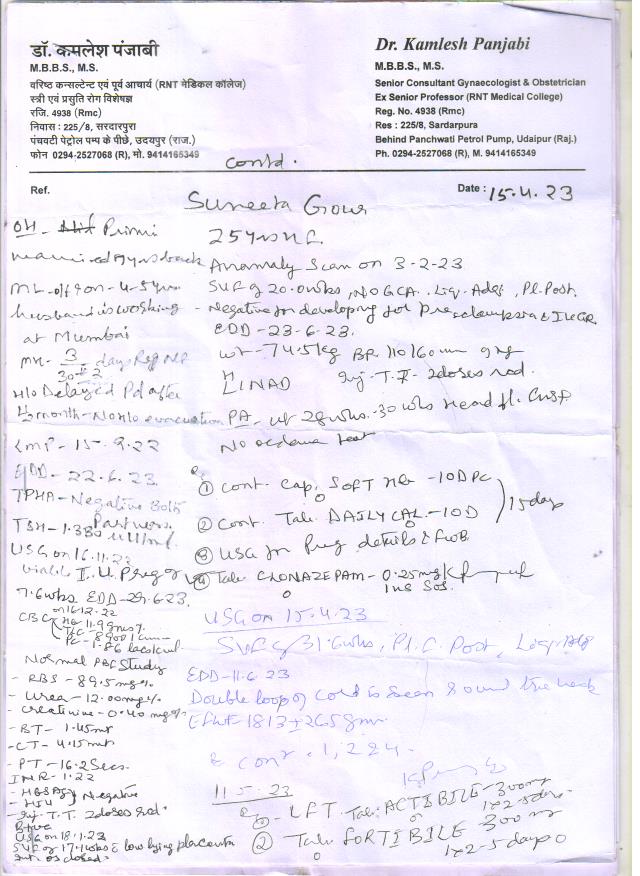 डॉ. कमलेश पंजाबी
M.B.B.S., M.S.
वरिष्ठ कन्सल्टेन्ट एवं पूर्व आचार्य (RNT मेडिकल कॉलेज)
स्त्री एवं प्रसुति रोग विशेषज्ञ
रजि. 4938 (Rmc)
निवास : 225/8, सरदारपुरा
पंचवटी पेट्रोल पम्प के पीछे, उदयपुर (राज.)
फोन 0294-2527068 (R), मो. 9414165349
Dr. Kamlesh Panjabi
M.B.B.S., M.S.
Senior Consultant Gynaecologist & Obstetrician
Ex Senior Professor (RNT Medical College)
Reg. No. 4938 (Rmc)
Res : 225/8, Sardarpura
Behind Panchwati Petrol Pump, Udaipur (Raj.)
Ph. 0294-2527068 (R), M. 9414165349
contd.
Ref.
Date : 15.4.23
Suneeta Gour
OH - Primi
married yrs back
ML - on - 4-5 yrs
husband is working
at Mumbai
MH - 3/30 days Reg
H/o Delayed Pd after
month - No H/o evacuation
LMP - 15.9.22
EDD - 22.6.23
TPHA - Negative Both Partners
TSH - 1.38
USG on 16.11.22
viable I.U. Preg of
7.6 wks EDD - 29.6.23
on 16.12.22
CBC Hb 11.9 gms%
TLC 8900/cumm
PC - 1.86 lacs/cuml
Normal PBF Study
- RBS - 89.5 mg%
- Urea - 12.00 mg%
- Creatinine - 0.40 mg%
- BT - 1.45 mt
- CT - 4.15 mt
- PT - 16.2 Secs.
INR - 1.22
- HBSAg
- HIV Negative
- Inj. T.T. 2 doses rcd.
USG on 18.1.23
SVF of 17.1 wks c low lying placenta
Int. os closed
25 yrs
Anomaly Scan on 3-2-23
SVF of 20.0 wks, NO GCA, Liq. Adq, Pl. Post.
- Negative for developing for Pre eclampsia & IUGR
EDD - 23-6-23.
wt - 74.5 kg BP 110/60 mm
H
L NAD Inj. T.T. 2 doses rcd.
PA - ut 28 wks - 30 wks Head fl.
No oedema feet
① Cont. Cap. SOFT - 10D PC
② Cont. Tab. DAILYCAL - 10D
15 days
③ USG for Preg details & FWB
④ Tab. CLONAZEPAM - 0.25 mg
1 HS SOS.
USG on 15.4.23
SVF of 31.6 wks, Pl. C. Post, Liq. Adq
EDD - 11.6.23
Double loop of cord is seen round the neck
EFWt - 1813 ± 265 gm.
cont. 1, 2 & 4.
11.5.23
① - LFT. Tab. ACTIBILE - 300 mg
1x2 - 5 days
② Tab. FORTIBILE - 300 mg
1x2 - 5 days